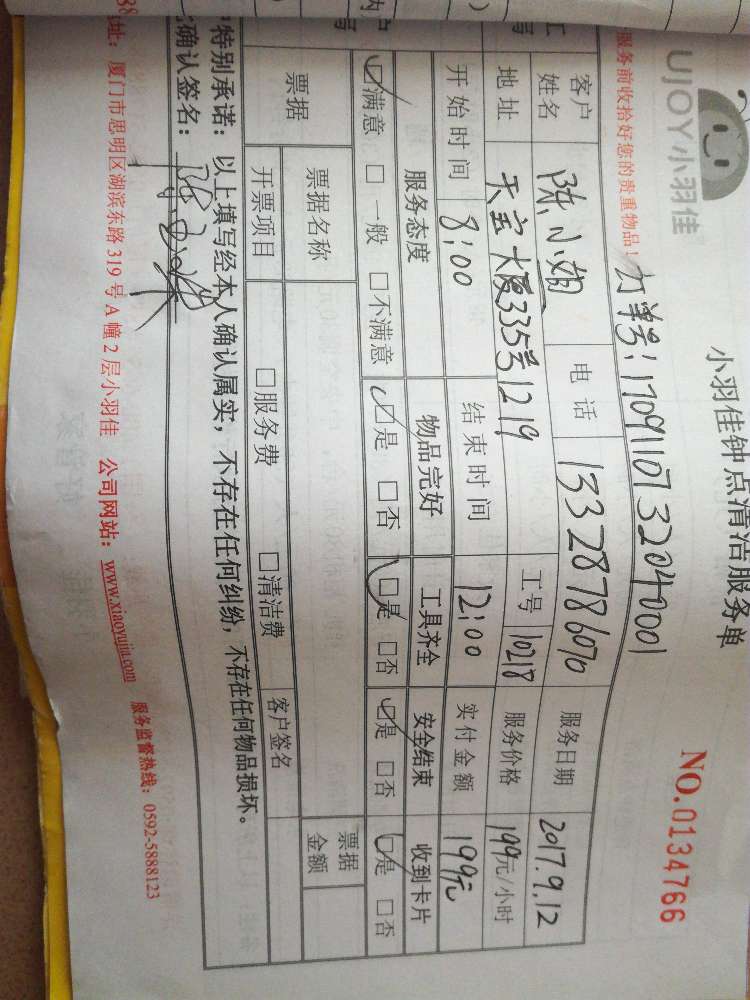 UJOY小羽佳
小羽佳钟点清洁服务单
NO.0134766
服务前收拾好您的贵重物品!
订单号:1709110732040001
客户姓名 陈小姐 电话 13328786070 服务日期 2017.9.12
地址 天宝大厦335号1219 工号 10218 服务价格 199元/小时
开始时间 8:00 结束时间 12:00 实付金额 199元
服务态度 物品完好 工具齐全 安全结束 收到卡片
☑满意 □一般 □不满意 ☑是 □否 ☑是 □否 ☑是 □否 ☑是 □否
票据 票据名称 客户签名 票据金额
开票项目 □服务费 □清洁费
特别承诺:以上填写经本人确认属实,不存在任何纠纷,不存在任何物品损坏。
确认签名:
址:厦门市思明区湖滨东路319号A幢2层小羽佳 公司网站:www.xiaoyujia.com 服务监督热线:0592-5888123